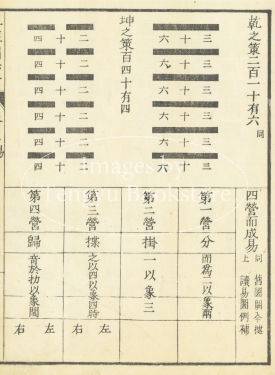 乾之策二百一十有六 同
三十六
三十六
三十六
三十六
三十六
三十六
坤之策百四十有四
二十四
二十四
二十四
二十四
二十四
二十四
四營而成易 同上
舊圖闕今據
讀易圖例補
第一營 分 而為二以象兩
第二營 掛 一以象三
第三營 揲 之以四以象四時
左
右
第四營 歸 奇於扐以象閏
左
右
Images by
Tenryu Bookstore